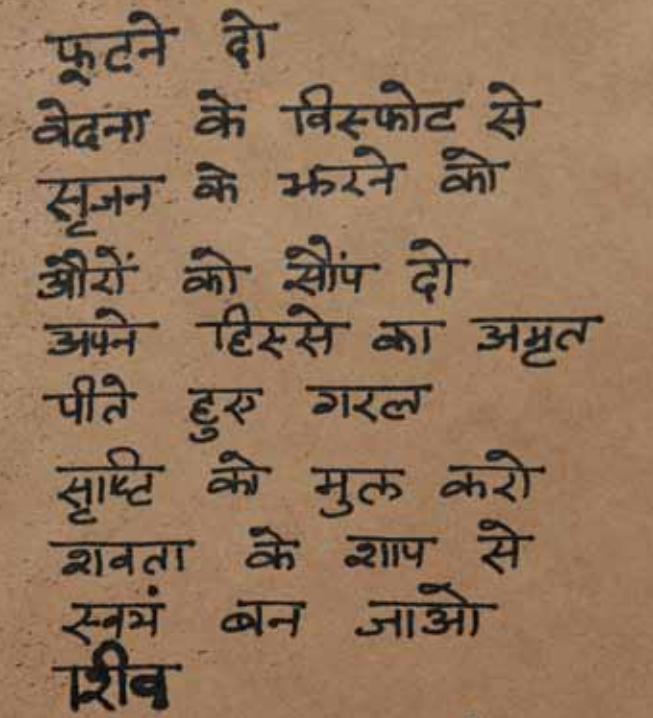 फूटने दो
वेदना के विस्फोट से
सृजन के झरने को
औरों को सौंप दो
अपने हिस्से का अमृत
पीते हुए गरल
सृष्टि को मुक्त करो
शवता के शाप से
स्वयं बन जाओ
शिव